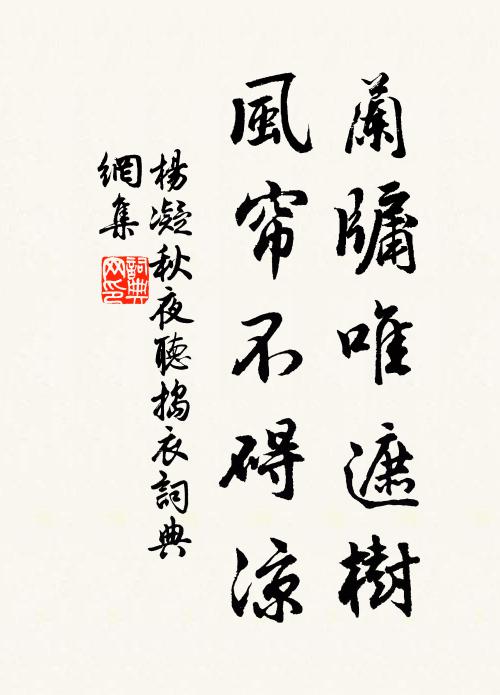 蘭牗唯遮樹
風帘不碍涼
楊凝秋夜聽搗衣詞典
網集
詞典
网印